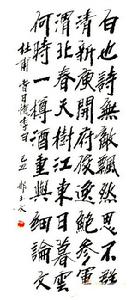 白也詩無敵飄然思不群
清新庾開府俊逸鮑參軍
渭北春天樹江東日暮雲
何時一樽酒重與細論文
杜甫春日憶李白